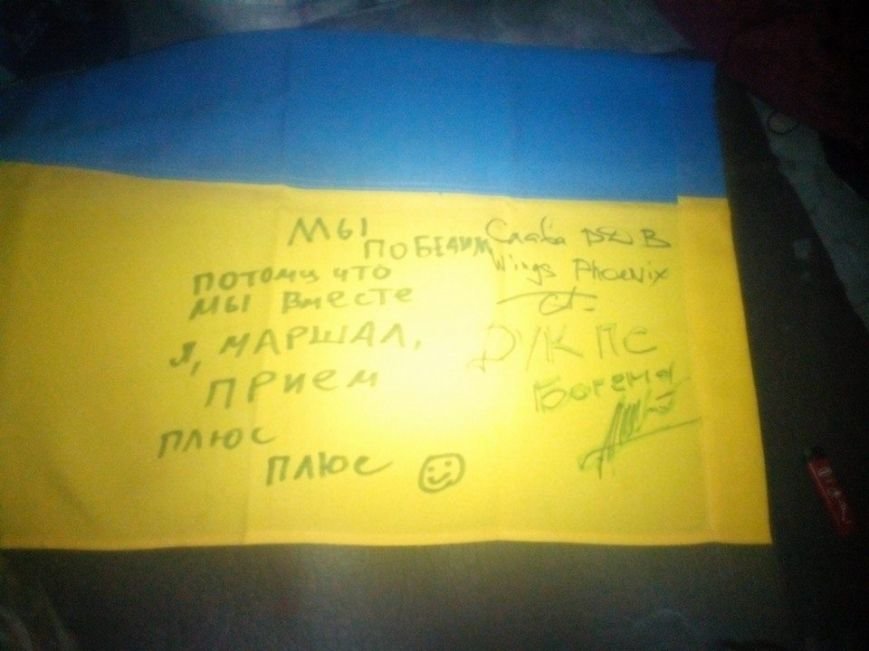 МЫ
ПОБЕДИМ
ПОТОМУ ЧТО
МЫ ВМЕСТЕ
Я, МАРШАЛ,
ПРИЕМ
ПЛЮС
ПЛЮС
Слава В
Wings Phoenix
РУК ПС
Богема